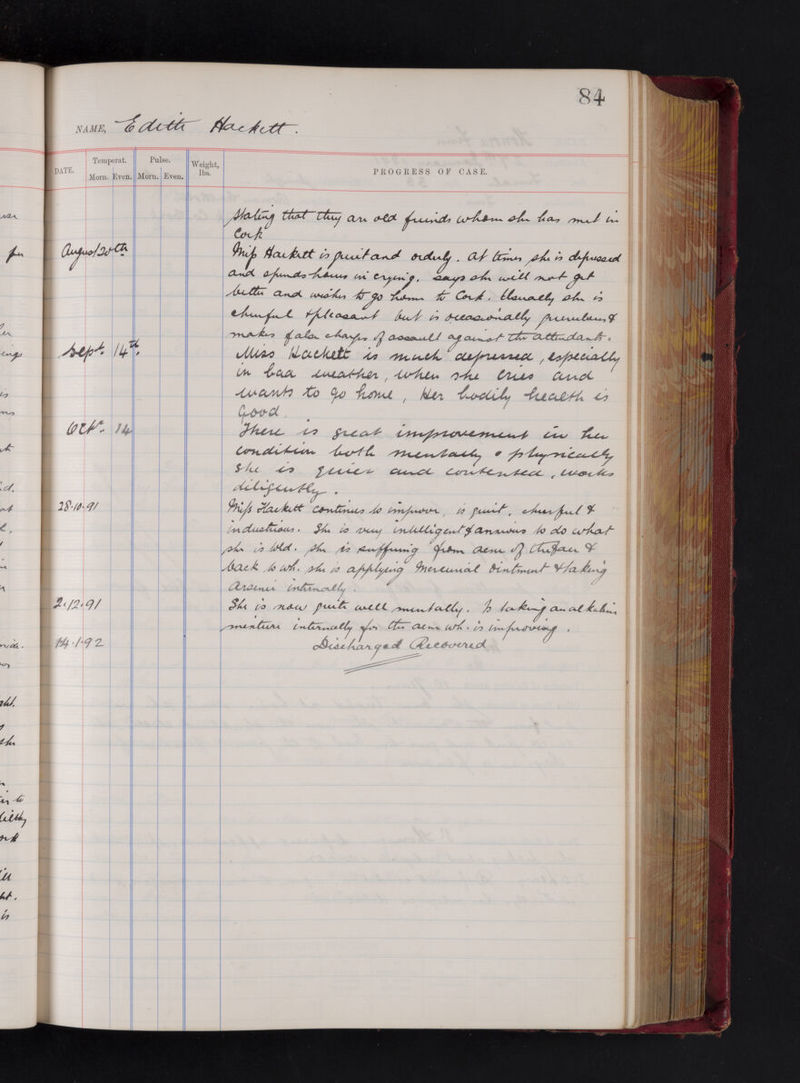 84
NAME, Edith Hackett.
DATE. Temperat. Morn. Even. Pulse. Morn. Even. Weight, lbs. PROGRESS OF CASE.
stating that they are old friends whom she has met in
Cork
August 20th Miss Hackett is quiet and orderly. At times she is depressed
and spends hours in crying. says she will not get
better and wishes to go home to Cork. Usually she is
cheerful & pleasant but is occasionally querulous &
makes false charges of assault against the attendants.
Sept. 14th. Miss Hackett is much depressed, especially
in bad weather, when she cries and
wants to go home, Her bodily health is
Good.
Oct. 14 There is great improvement in her
condition both mentally & physically
She is quiet and contented, works
diligently.
28.10.91 Miss Hackett continues to improve, is quiet, cheerful &
industrious. She is very intelligent & anxious to do what
she is told. She is suffering from acne of the face &
back to wh. she is applying Mercurial Ointment & taking
Arsenic internally.
2.12.91 She is now quite well mentally. Is taking an alkaline
mixture internally for the acne wh. is improving.
14.1.92 Discharged Recovered